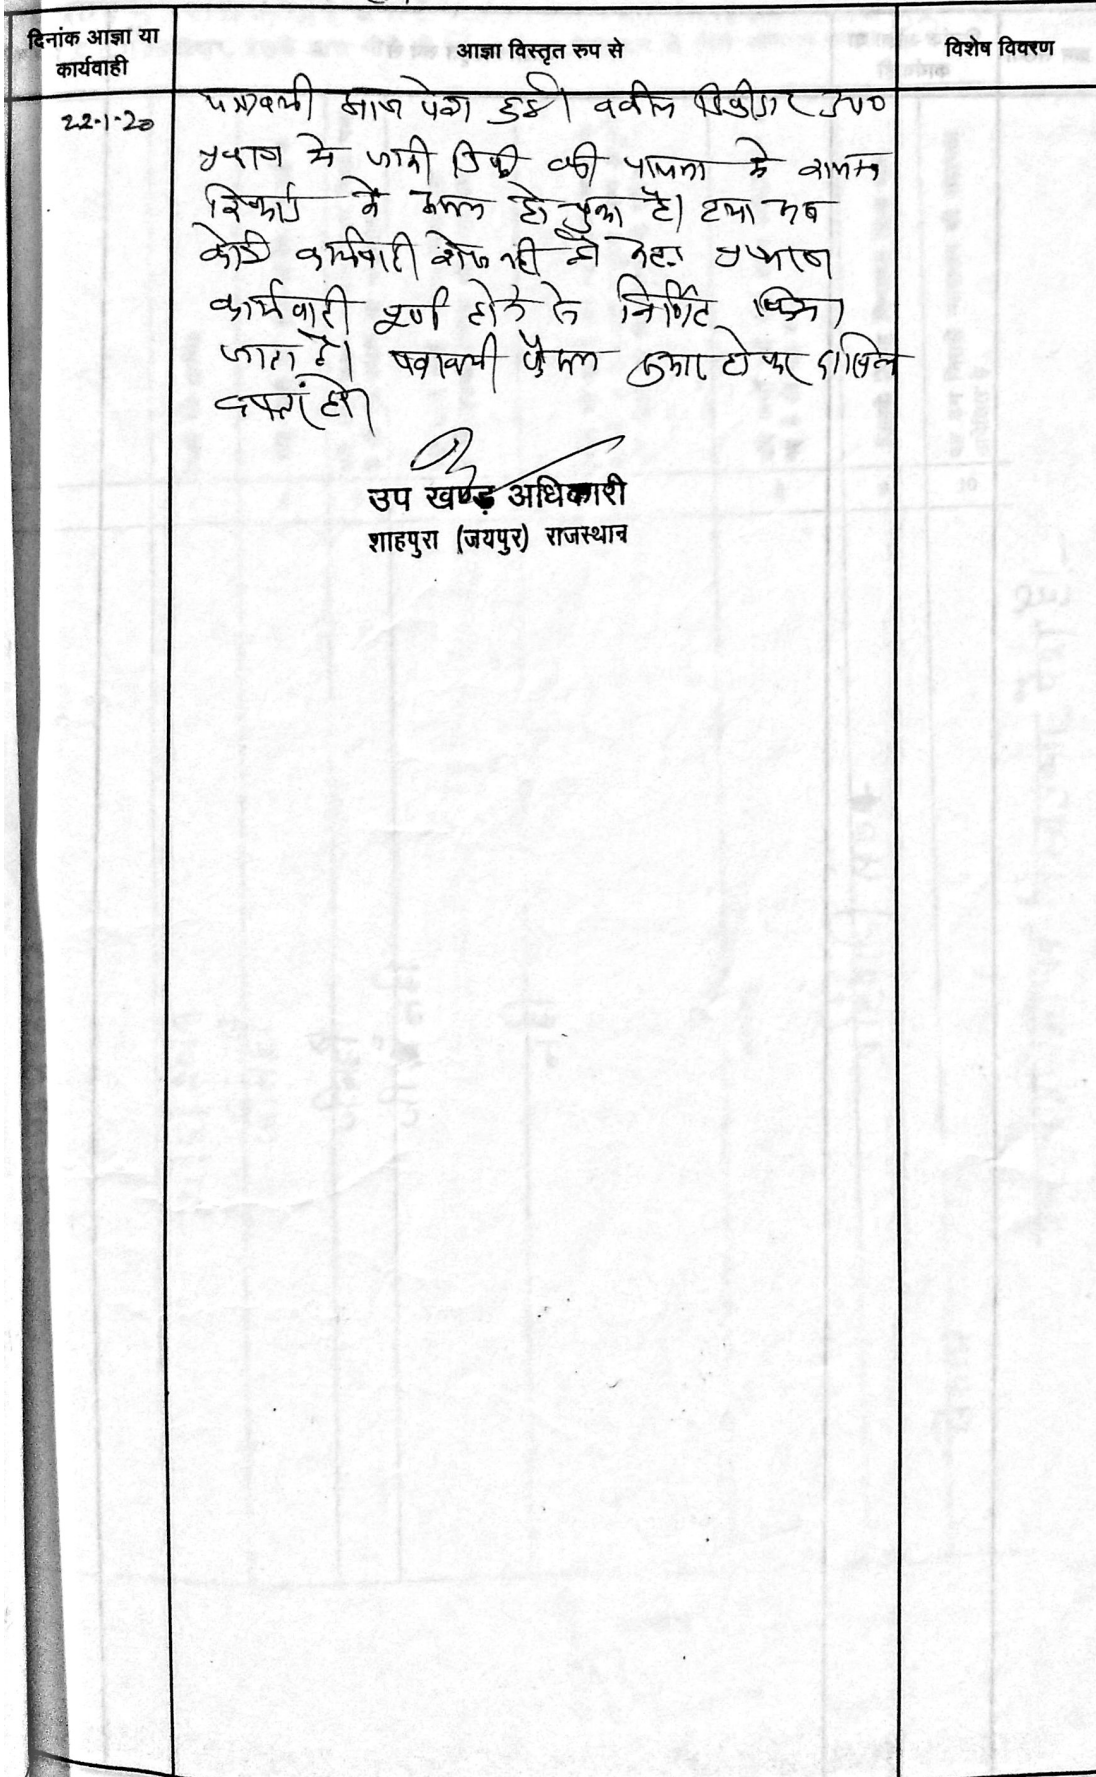 दिनांक आज्ञा या
कार्यवाही
आज्ञा विस्तृत रुप से
विशेष विवरण
22-1-20
पत्रावली आज पेश हुई। वकील डिक्रीदार उप०
प्रकरण में जारी डिक्री की पालना में राजस्व
रिकार्ड में अमल हो चुका है। तथा अब
कोई कार्यवाही शेष नही है अतः प्रकरण
कार्यवाही पूर्ण होने से निर्णित किया
जाता है। पत्रावली फैसल शुमार होकर दाखिल
दफ्तर हो।
उप खण्ड़ अधिकारी
शाहपुरा (जयपुर) राजस्थान